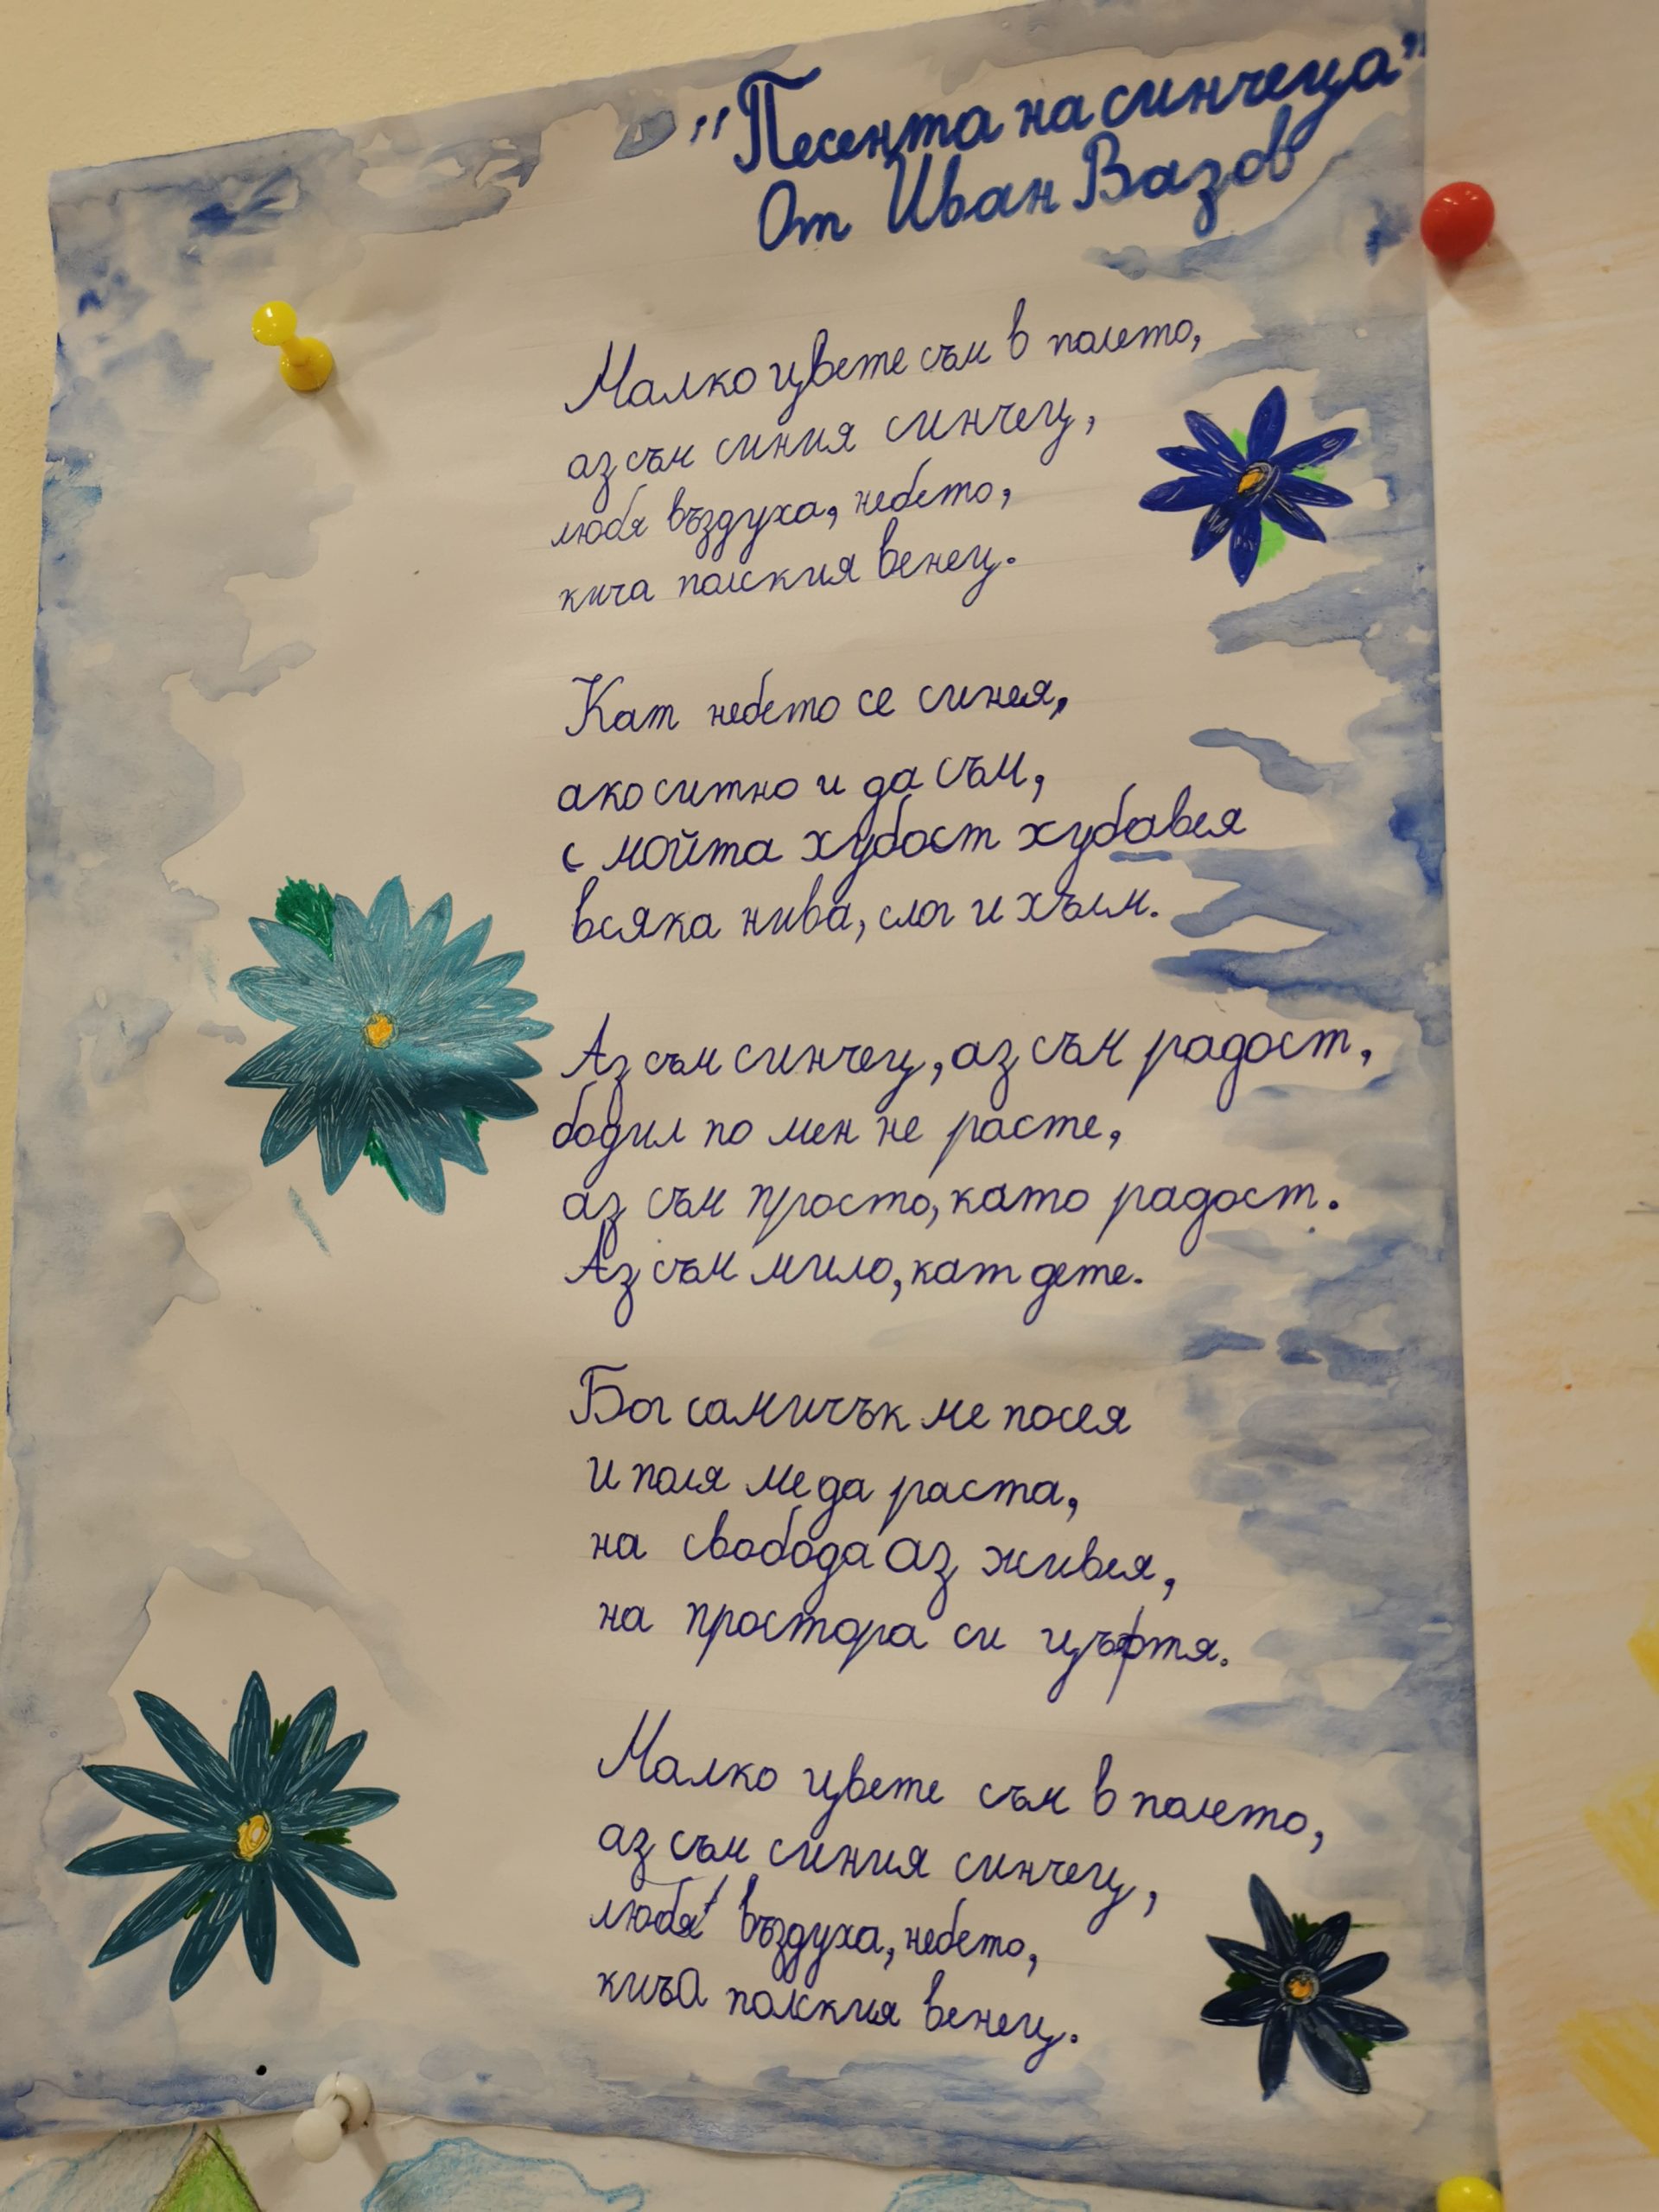 "Песента на синчеца"
От Иван Вазов
Малко цвете съм в полето,
аз съм синия синчец,
любя въздуха, небето,
кича полския венец.
Кат небето се синея,
ако ситно и да съм,
с мойта хубост хубавея
всяка нива, слог и хълм.
Аз съм синчец, аз съм радост,
бодил по мен не расте,
аз съм просто, като радост.
Аз съм мило, кат дете.
Бог самичък ме посея
и поля ме да раста,
на свобода аз живея,
на простора си цъфтя.
Малко цвете съм в полето,
аз съм синия синчец,
любя въздуха, небето,
кича полския венец.